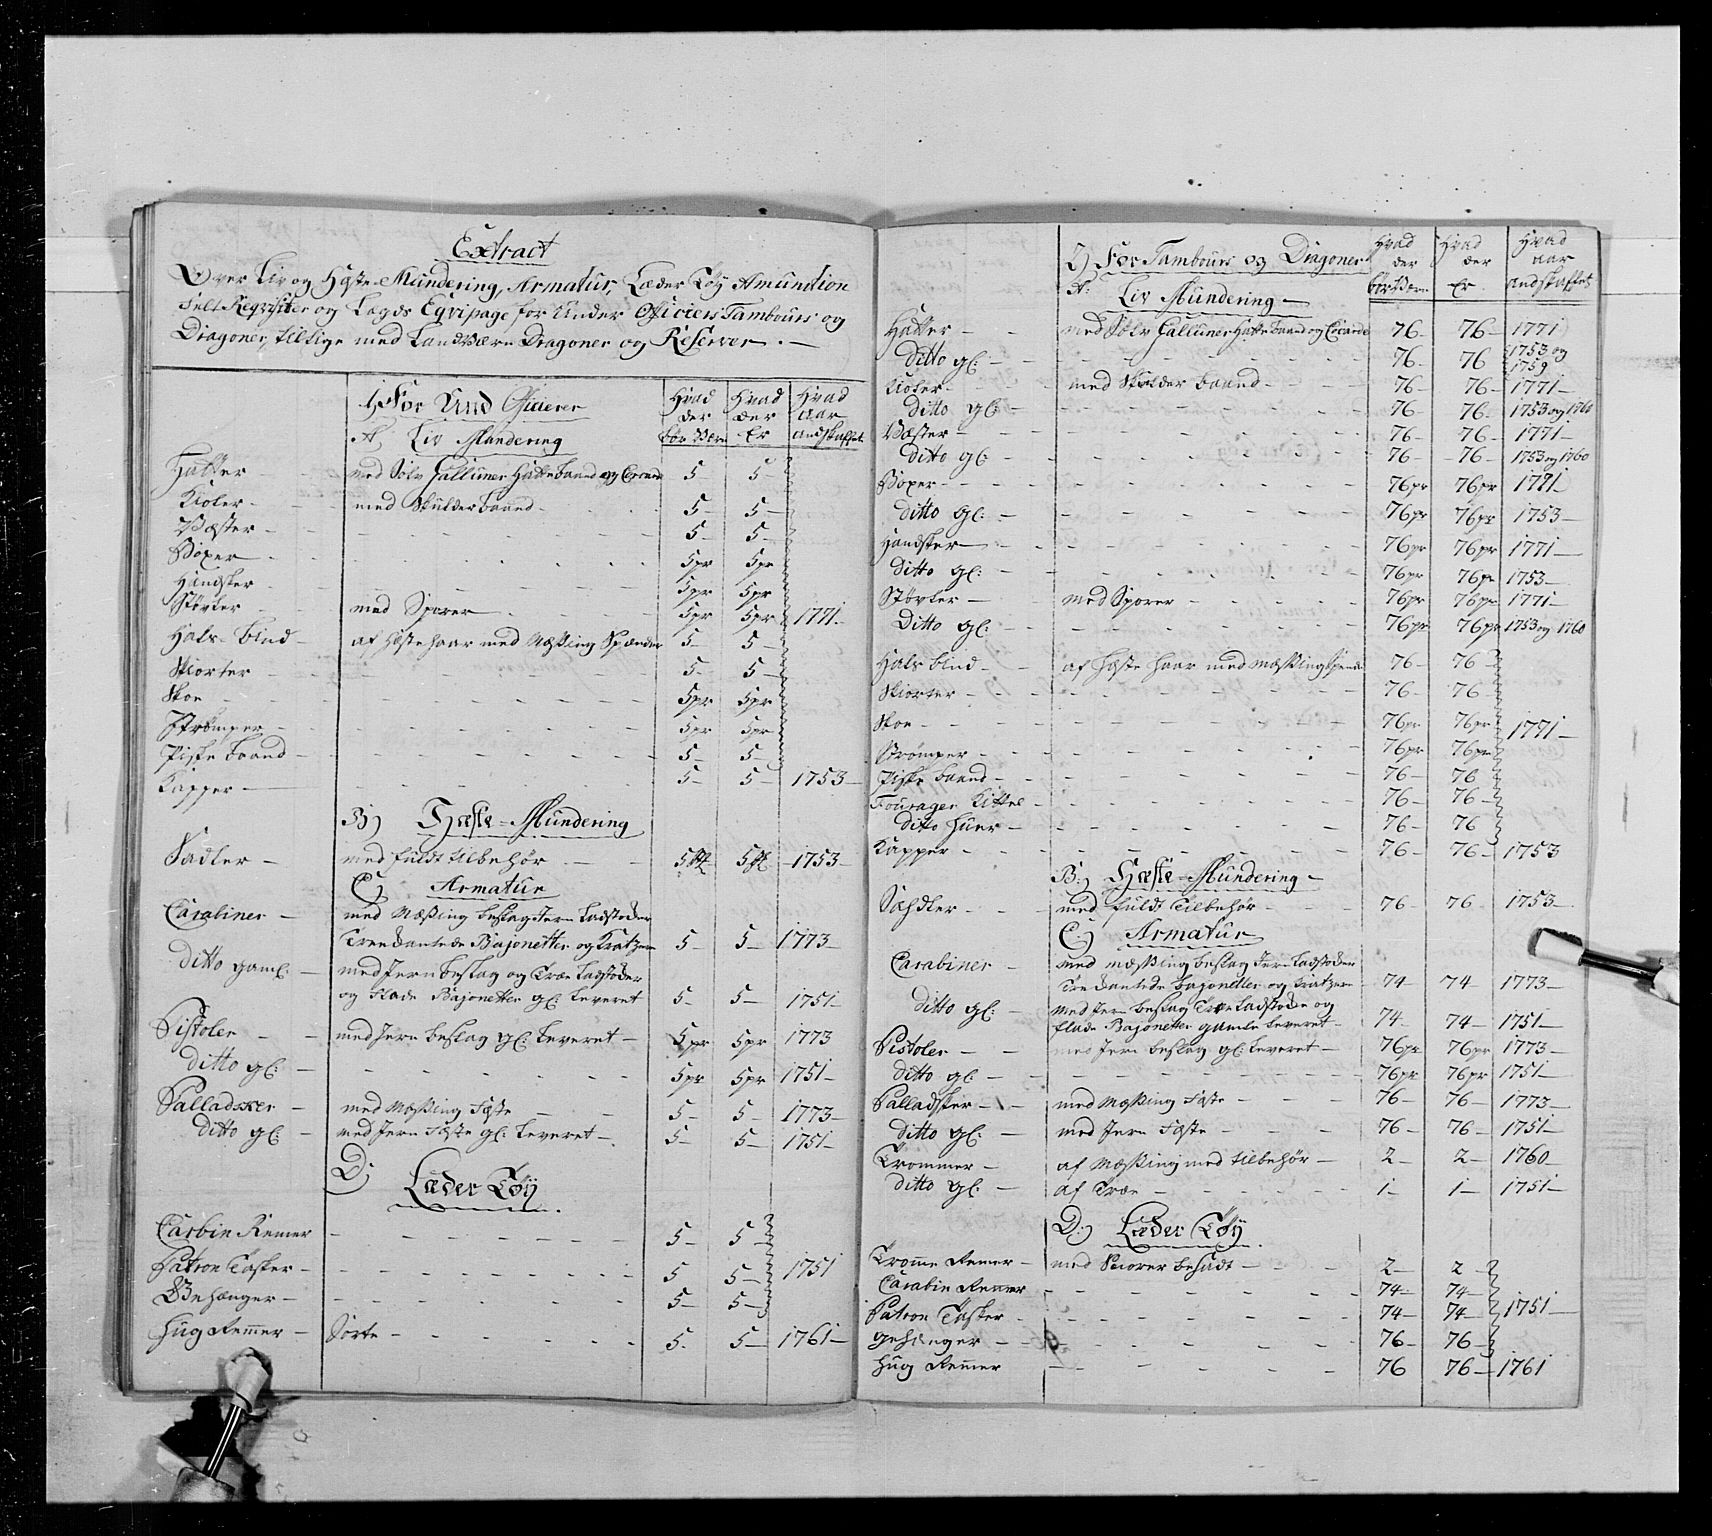 Extract
Over Liv og Heste-Mundering, Armatur, Læder Töÿ Amunition
Felt Reqvisiter og Lagds Eqvipage for Under Officiers Tambours og
Dragoner, tillige med Landværn Dragoner og Reserver. —
1) For Und Officierer Hvad der bör Være Hvad der Er Hvad aar andskaffet
A, Liv Mundering
Hatter — med Sölv Galluner Hattebaand og Cocarde 5 — 5 —
Kioler — med Skulderbaand 5 — 5 —
Væster — 5 — 5 —
Boxer — 5 pr 5 pr
Handsker — 5 pr 5 pr
Støvler — med Sporer 5 pr 5 pr 1771 —
Hals-bind — af Hestehaar med Messing Spænder 5 — 5 —
Skiorter — 5 — 5 —
Skoe 5 pr 5 pr
Strömper — 5 pr 5 pr
Piske baand — 5 — 5 —
Kapper — 5 — 5 — 1753 —
B) Heste-Mundering
Sadler — med fuldt tilbehör 5 St 5 St 1753 —
C) Armatur
Carabiner — med Messing beslag Jern Ladstoder
Treekantede Bajonetter og Kratzer 5 — 5 — 1773 —
Ditto gaml: — med Jern beslag og Træe Ladstoder
og Flade Bajonetter gl: Leveret 5 — 5 — 1751 —
Pistoler — med Jern beslag gl: Leveret — 5 pr 5 pr 1773
ditto gl: — 5 pr 5 pr 1751 —
Palladsker — med Messing Feste 5 — 5 — 1773 —
ditto gl: — med Jern Feste gl: Leveret — 5 — 5 — 1751 —
D) Læder Töÿ
Carbin Remer 5 — 5 —
Patron Tasker — 5 5 — 1751
Gehænger — 5 — 5 —
Hug Remmer — Sorte — 5 — 5 — 1761 —
2) For Tambours og Dragoner Hvad der bör Være Hvad der Er Hvad aar andskaffet
A: Liv Mundering —
Hatter — med Sölv Galluner Hattebaand og Cocarde 76 — 76 — 1771
ditto gl: — 76 — 76 1753 og 1759
Kioler — med Skulder baand — 76 — 76 — 1771 —
ditto gl: — 76 — 76 — 1753 og 1760
Væster — 76 — 76 — 1771 —
ditto gl: 76 — 76 — 1753 og 1760
Boxer — 76 pr 76 pr 1771 —
ditto gl: — 76 pr 76 pr 1753 —
Handsker — 76 pr 76 pr 1771 —
ditto gl: — 76 pr 76 pr 1753 —
Støvler — med Sporer — 76 pr 76 pr 1771 —
Ditto gl: — 76 pr 76 pr 1753 og 1760
Hals bind — af Heste haar med Messing 76 — 76 —
Skiorter — 76 — 76 —
Skoe — 76 pr 76 pr 1771 —
Strömper — 76 pr 76 pr
Piske baand — 76 — 76
Fourager Kittel — 76 — 76 —
ditto Huer — 76 — 76
Kapper — 76 — 76 — 1753
B:) Heste-Mundering —
Sahdler — med fuldt Tilbehör 76 — 76 — 1753 —
C:) Armatur
Carabiner — med messing beslag Jern Ladstoder
Treekantede bajonetter og Kratzer 74 — 74 — 1773 —
ditto gl: — med Jern beslag Træe Ladstoder og
flade Bajonetter gamle Leveret — 74 — 74 — 1751 —
Pistoler — med Jern beslag gl: Leveret — 76 pr 76 pr 1773 —
ditto gl: — 76 pr 76 pr 1751 —
Palladsker — med Messing Feste — 76 — 76 — 1773 —
ditto gl: — med Jern Feste — 76 — 76 — 1751 —
Trommer — af Messing med tilbehör — 2 — 2 — 1760 —
ditto gl: — af Træe — 1 — 1 — 1751 —
D:) Læder Töÿ
Tromme Remer — med Snorer besadt — 2 — 2 —
Carabin Remmer — 74 — 74 —
Patron Tasker — 74 — 74 — 1751 —
Gehænger — 76 — 76 —
Hug Remmer 76 76 — 1761